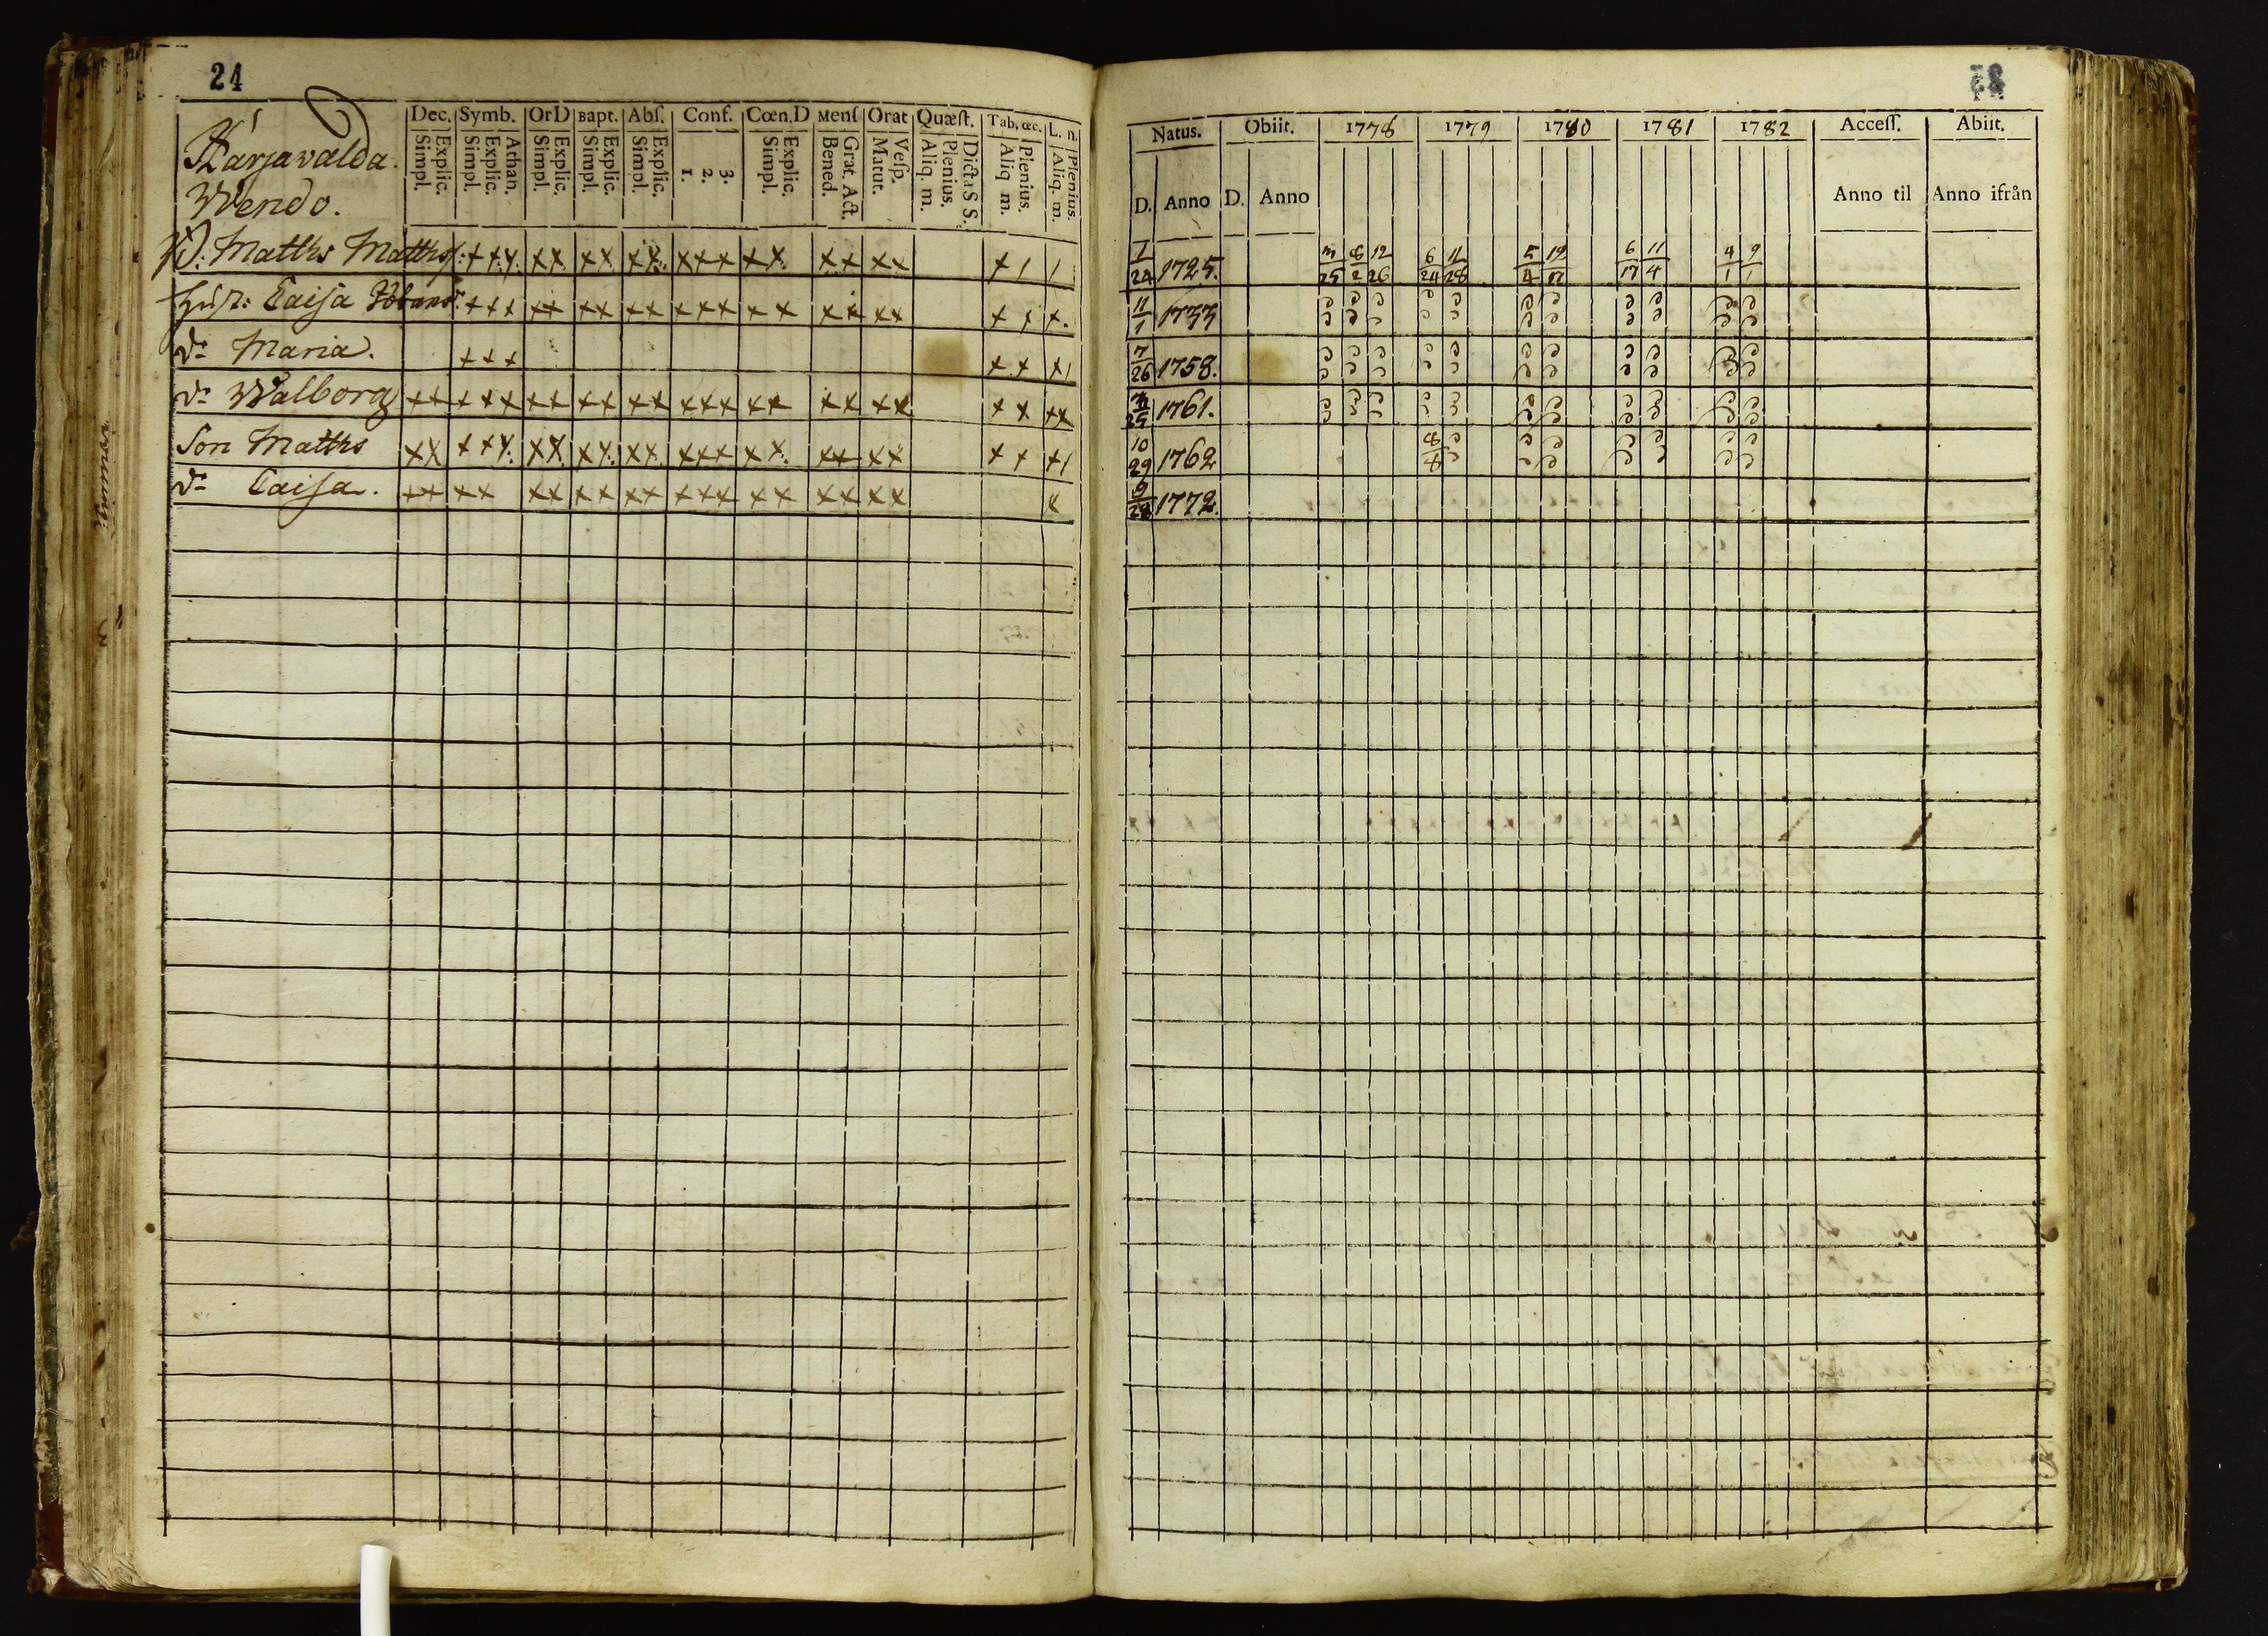 24
Karjavalda.
Wendo.
Dec. Symb. OrD Bapt. Abſ. Conf. Cœn.D Menſ Orat Quæſt. Tab. œc. L. n.
Explic. Simpl. Athan. Explic. Simpl. Explic. Simpl. Explic. Simpl. Explic. Simpl. 3. 2. 1. Explic. Simpl. Grat. Act. Bened. Veſp. Matut. Dicta S S. Plenius. Aliq. m. Plenius. Aliq m. Plenius. Aliq. m.
Matths Matths
Caisa
Dr Maria.
Dr Walborg
Son Matths
Dr Caisa.
Natus. Obiit. 1778 1779 1780 1781 1782 Acceſſ. Abiit.
D. Anno D. Anno Anno til Anno ifrån
1/24 1725. 3/25 8/2 12/26 6/24 11/28 5/4 6/17 11/4 4/1 9/1
11/1 1733
7/26 1758.
1761.
10/29 1762 8/4
9/28 1772.